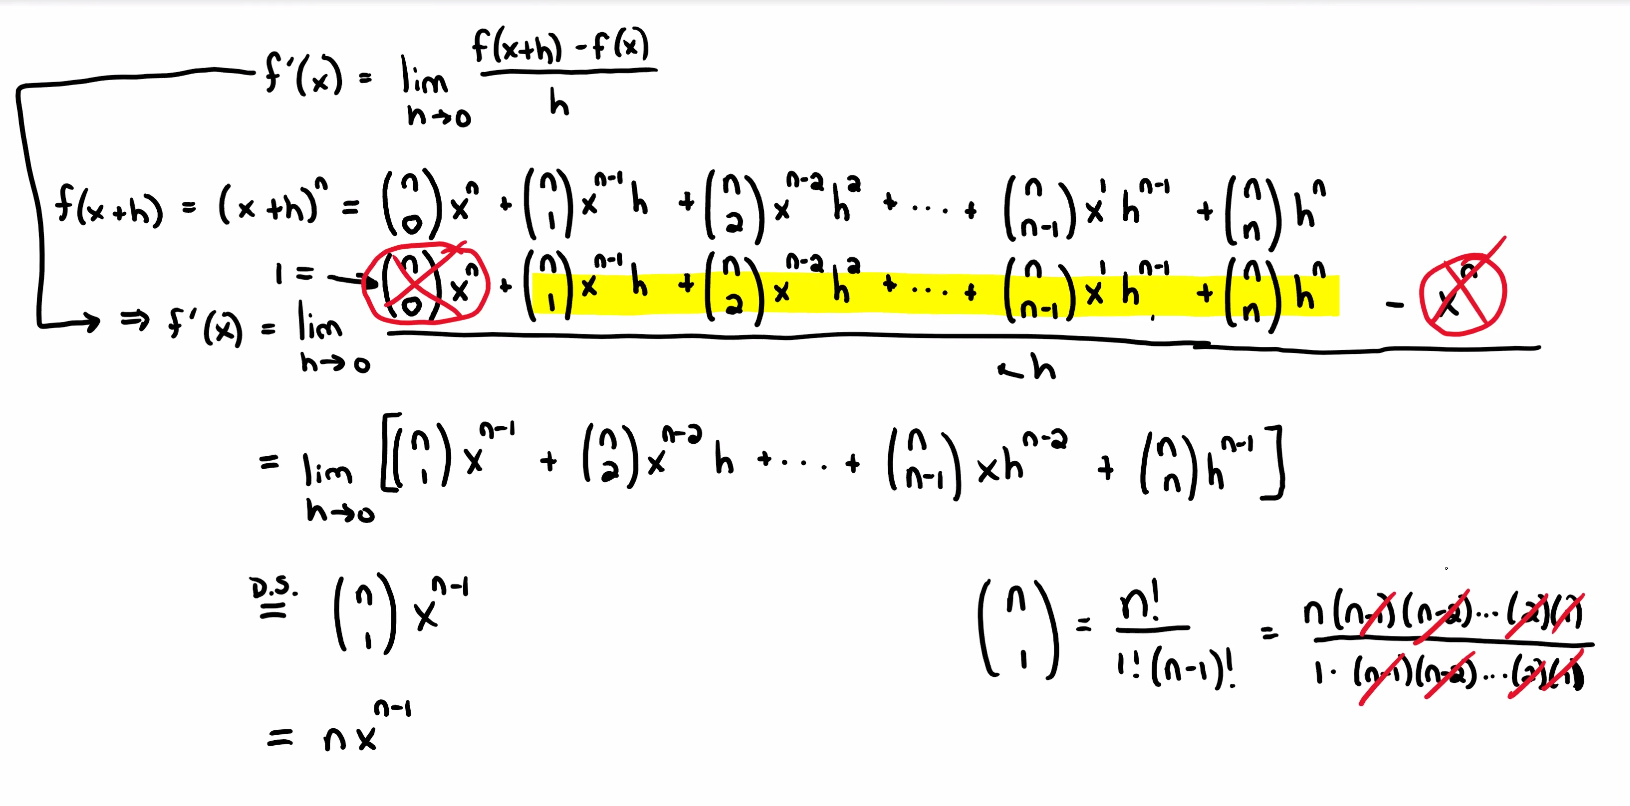 f'(x) = lim h→0 (f(x+h) - f(x)) / h
f(x+h) = (x+h)^n = (n 0) x^n + (n 1) x^{n-1} h + (n 2) x^{n-2} h^2 + ... + (n n-1) x^1 h^{n-1} + (n n) h^n
1 =
⇒ f'(x) = lim h→0 ((n 0) x^n + (n 1) x^{n-1} h + (n 2) x^{n-2} h^2 + ... + (n n-1) x^1 h^{n-1} + (n n) h^n - x^n) / h
= lim h→0 [(n 1) x^{n-1} + (n 2) x^{n-2} h + ... + (n n-1) x h^{n-2} + (n n) h^{n-1}]
D.S. = (n 1) x^{n-1}
(n 1) = n! / (1! (n-1)!) = (n (n-1)(n-2) ... (2)(1)) / (1 · (n-1)(n-2) ... (2)(1))
= n x^{n-1}